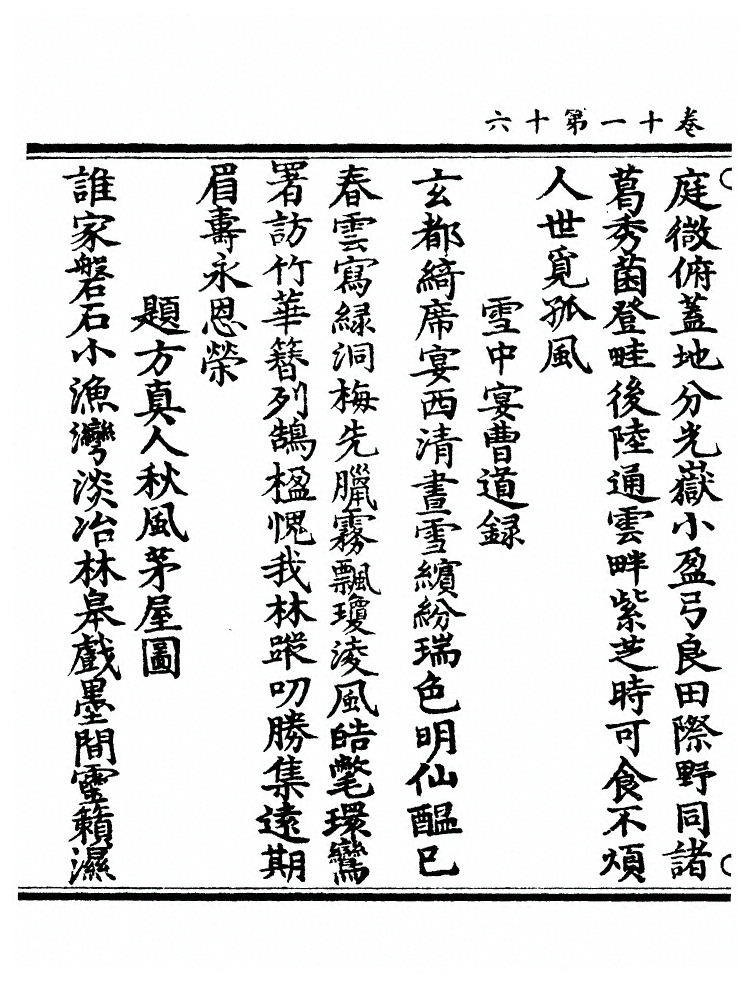 卷十一第十六
庭微俯蓋地分光嶽小盈弓良田際野同諸
葛秀菌登畦後陸通雲畔紫芝時可食不煩
人世覓孤風
雪中宴曹道録
玄都綺席宴西清晝雪繽紛瑞色明仙醖已
春雲寫緑洞梅先臘霧飄瓊淩風皓氅環鸞
署訪竹華簪列鵠楹愧我林蹤叨勝集遠期
眉壽永恩榮
題方真人秋風茅屋圖
誰家磐石小漁灣淡冶林臯戲墨間靈籟濕